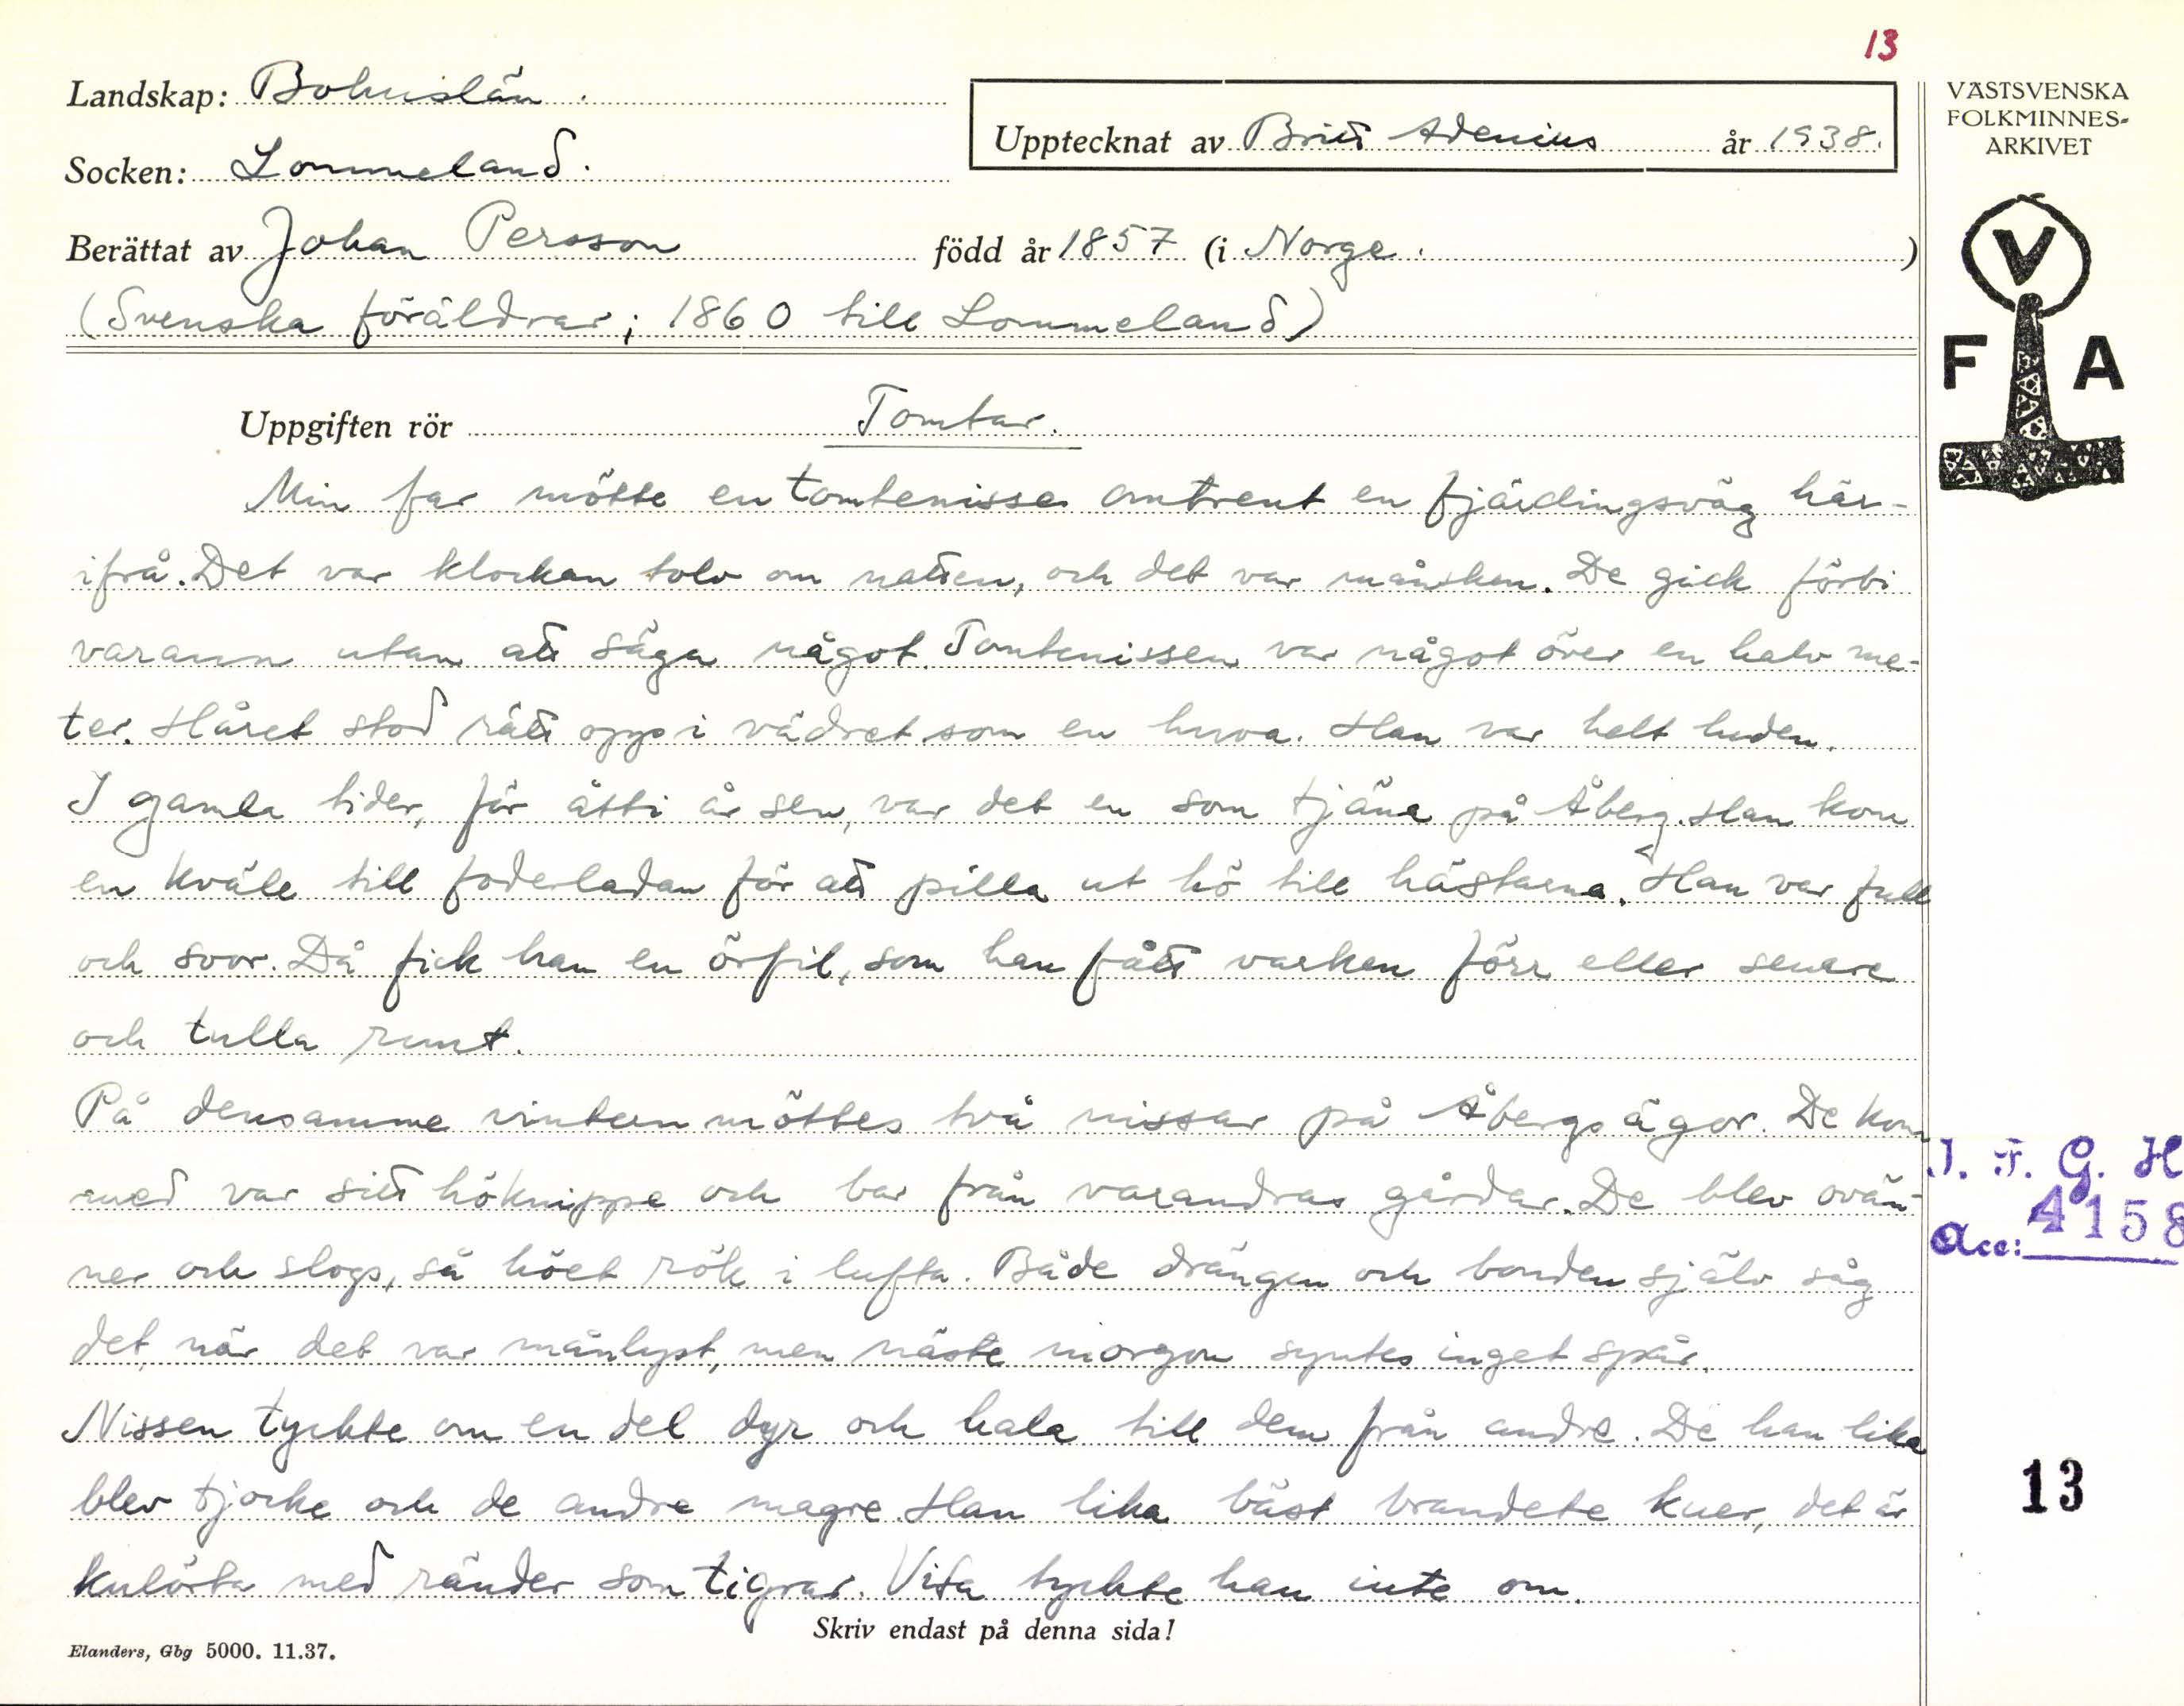 13
Landskap: Bohuslän.
Upptecknat av Britt Adenius år 1938.
Socken: Lommeland.
Berättat av Johan Persson född år 1857 (i Norge. )
(Svenska föräldrar; 1860 till Lommeland)
VÄSTSVENSKA
FOLKMINNES-
ARKIVET
V
F A
Uppgiften rör Tomtar.
Min far mötte en tomtenisse omtrent en fjärdingsväg här-
ifrå. Det var klockan tolv om natten, och det var månsken. De gick förbi
varann utan att säga något. Tomtenissen var något över en halv me-
ter. Håret stod rätt opp i vädret som en huva. Han var helt luden.
I gamla tider, för åtti år sen, var det en som tjäna på Åberg. Han kom
en kväll till foderladan för att pilla ut hö till hästarna. Han var full
och svor. Då fick han en örfil, som han fått varken förr eller senare
och tulla runt.
På densamme vintern möttes två nissar på Åbergs ägor. De kom
med var sitt höknippe och bar från varandras gårdar. De blev ovän-
ner och slogs, så höet rök i lufta. Både drängen och bonden själv såg
det, när det var månlyst, men näste morgon syntes inget spår.
Nissen tyckte om en del dyr och hala till dem från andre. De han lika
blev tjocke och de andre magre. Han lika bäst brandete kuer, det är
kulörta med ränder som tigrar. Vita tyckte han inte om.
I. F. G. H
Acc: 4158
13
Skriv endast på denna sida!
Elanders, Gbg 5000. 11.37.